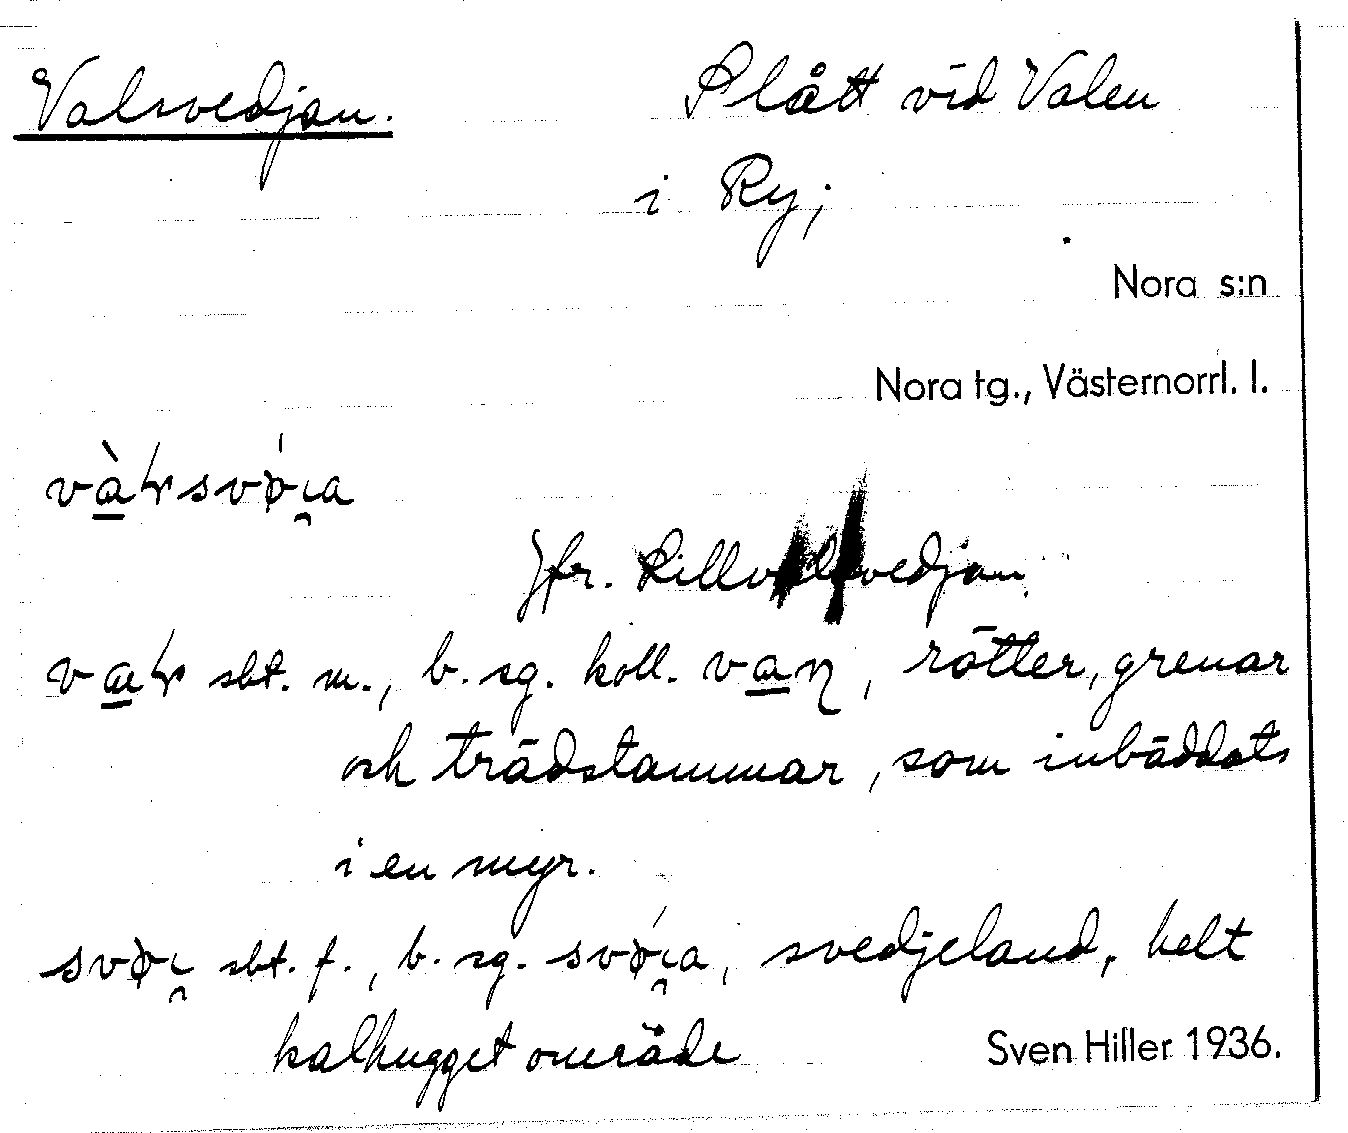 Valsvedjan. Slått vid Valen
i Ry;
Nora s:n
Nora tg., Västernorrl. l.
Jfr. Lillvalsvedjan.
sbt. m., b. sg. koll. rötter, grenar
och trädstammar, som inbäddats
i en myr.
sbt. f., b. sg. svedjeland, helt
kalhugget område Sven Hiller 1936.